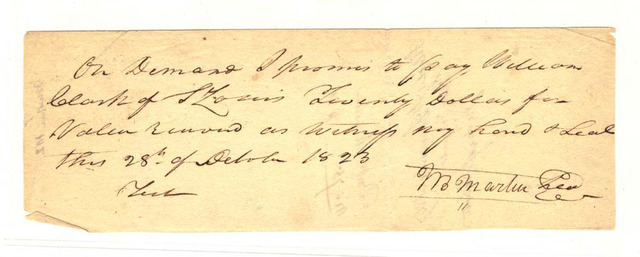 On Demand I promis to pay William
Clark of St Louis Twenty Dollars for
Value receved as witness my hand & Seal
this 28th of October 1823
Test
W B Martin Seal